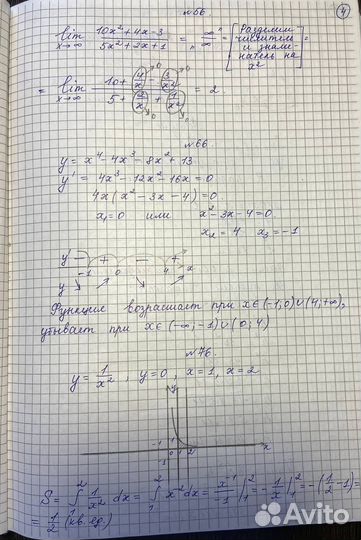 №56
④
lim x→∞ (10x² + 4x - 3)/(5x² + 2x + 1) = "∞/∞" = [Разделим числитель и знаменатель на x²] =
= lim x→∞ (10 + 4/x - 3/x²)/(5 + 2/x + 1/x²) = 2
№66.
y = x⁴ - 4x³ - 8x² + 13
y' = 4x³ - 12x² - 16x = 0
4x(x² - 3x - 4) = 0
x₁ = 0 или x² - 3x - 4 = 0
x₂ = 4 x₃ = -1
y' - + - +
-1 0 4 x
y
Функция возрастает при x∈(-1;0)∪(4;+∞),
убывает при x∈(-∞;-1)∪(0;4)
№76.
y = 1/x², y = 0, x = 1, x = 2
y
-1 0 1 2 x
-1
S = ∫₁² 1/x² dx = ∫₁² x⁻² dx = x⁻¹/-1 |₁² = -1/x |₁² = -(1/2 - 1) =
= 1/2 (кв. ед.)
Avito